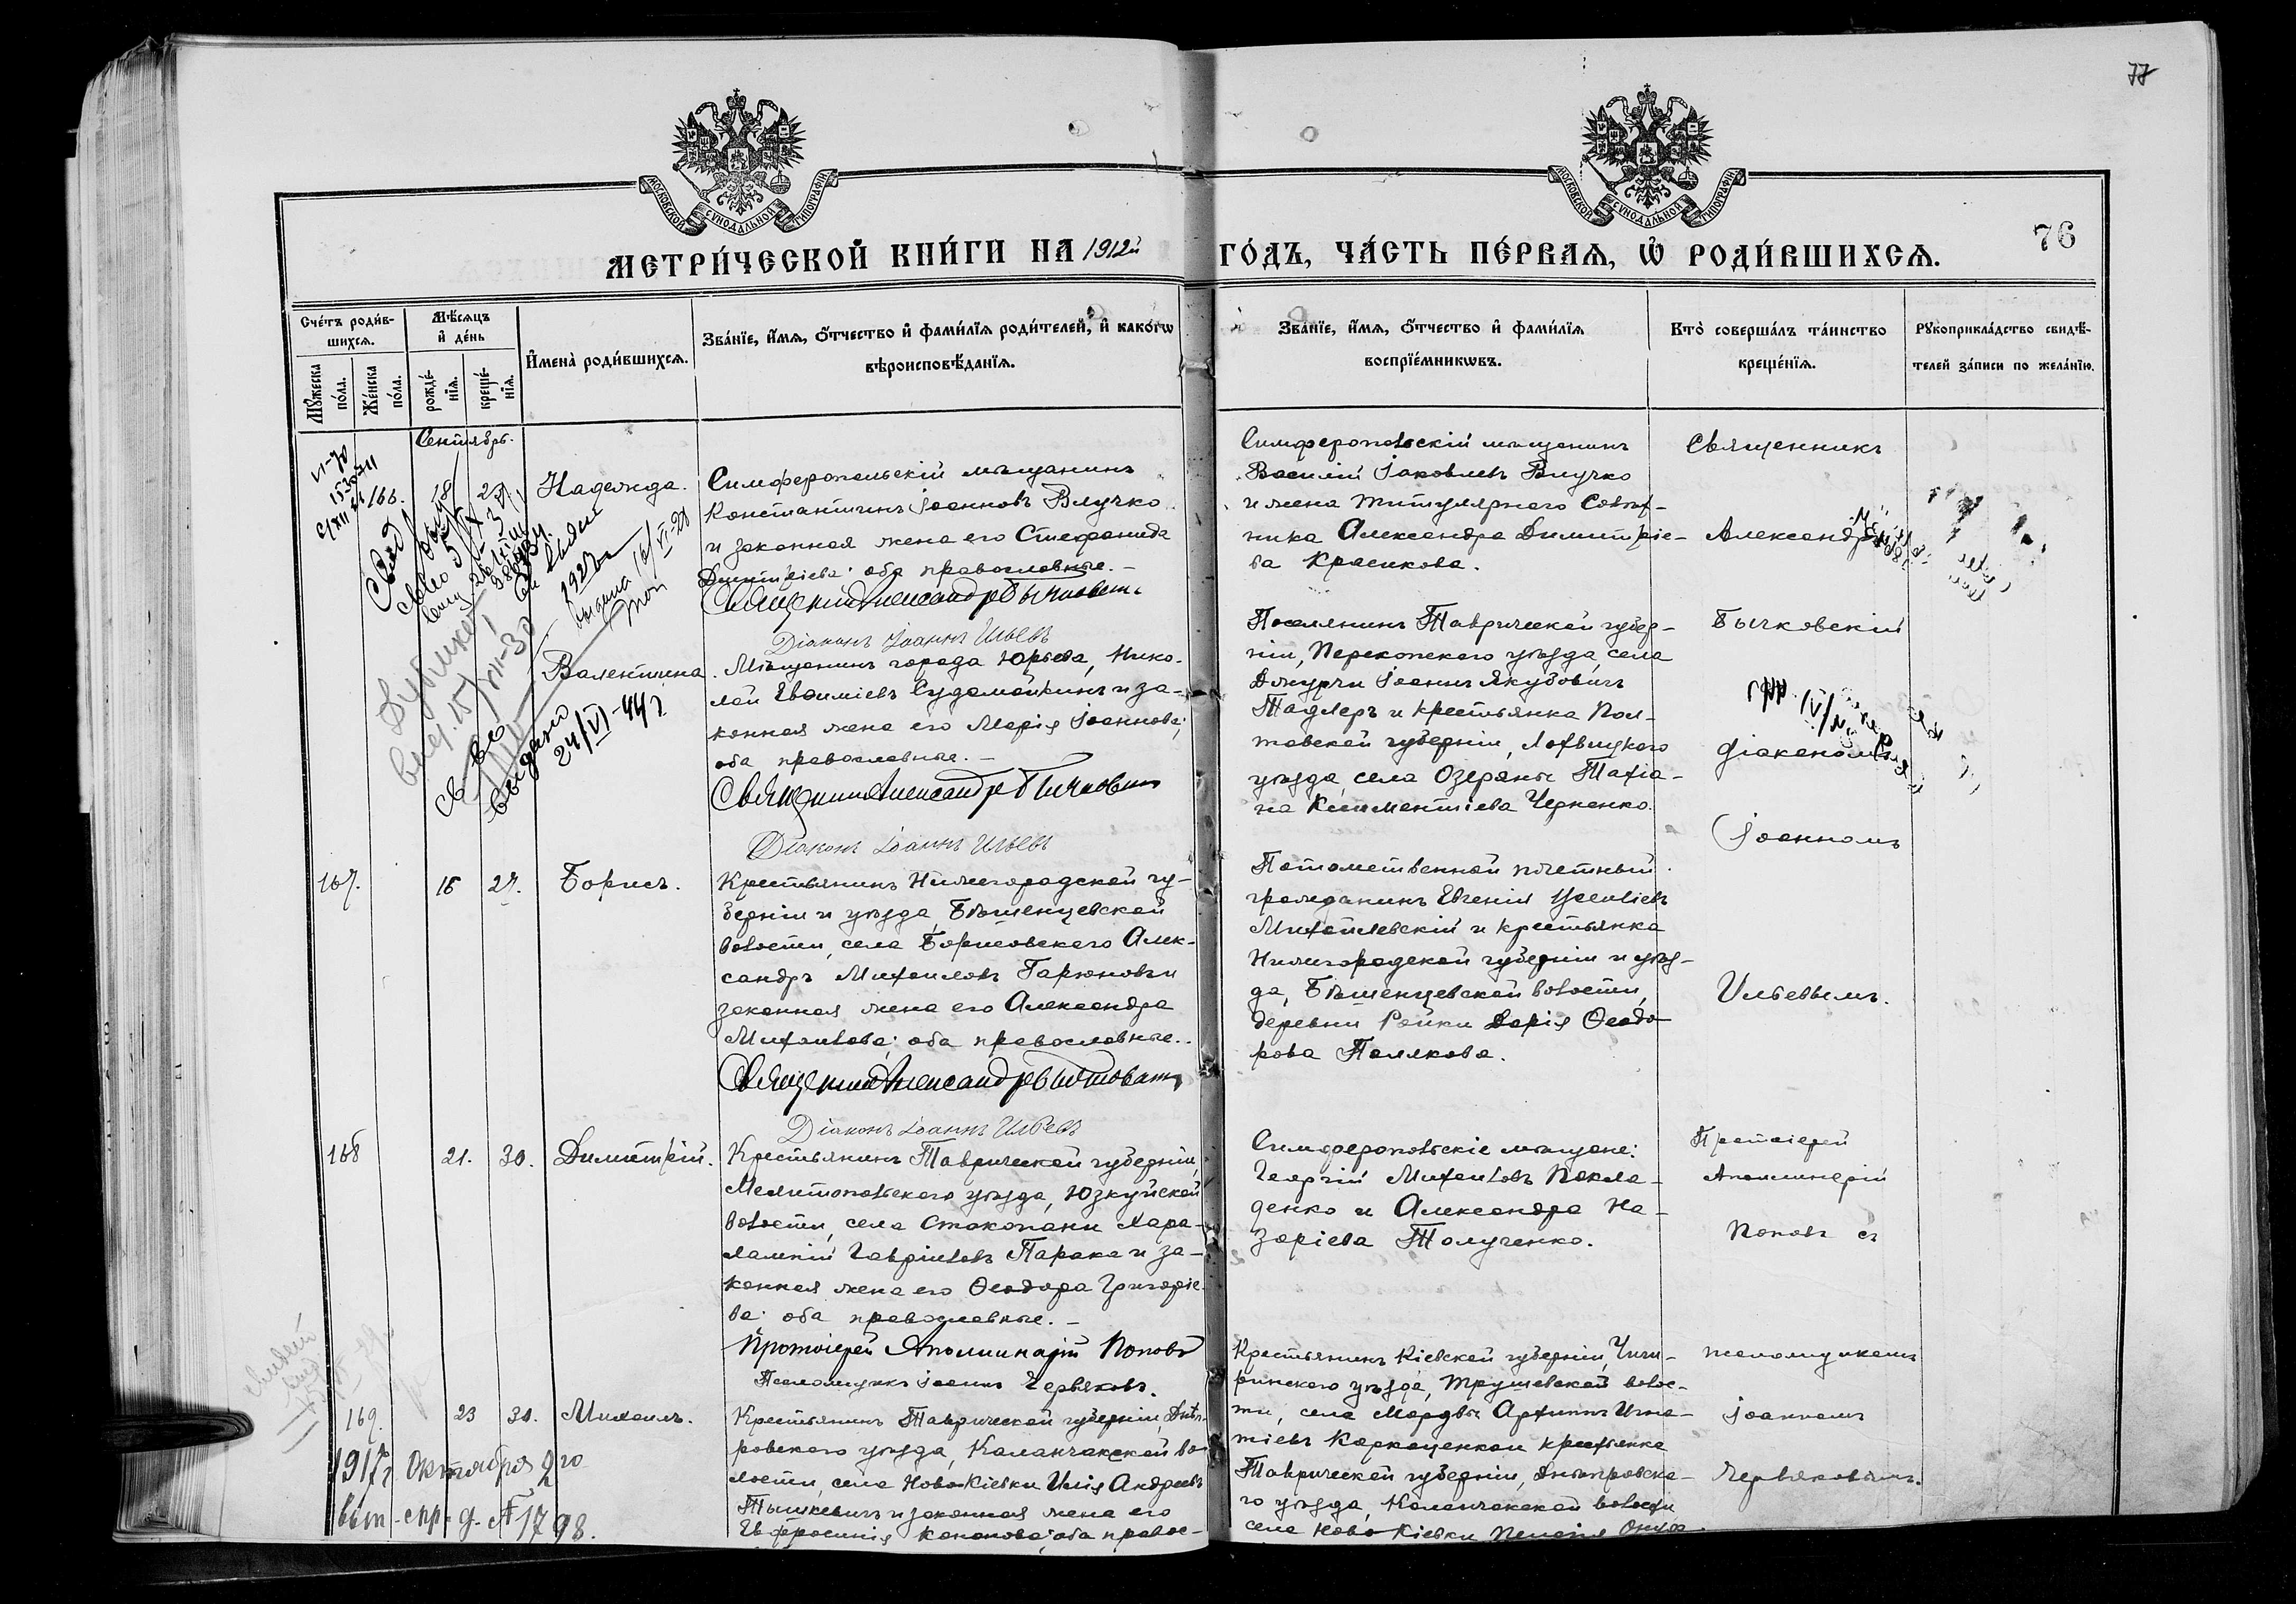 77
МОСКОВСКОЙ СѴНОДАЛЬНОЙ ТИПОГРАФІИ
МОСКОВСКОЙ СѴНОДАЛЬНОЙ ТИПОГРАФІИ
76
МЕТРИ́ЧЕСКОЙ КНИ́ГИ НА 1912й ГО́ДЪ, ЧА́СТЬ ПЕ́РВАЯ, Ѡ҆ РОДИ́ВШИХСЯ.
Сче́тъ роди́в-
шихся.
Мѣ́сяцъ
и҆ де́нь
Мꙋ́жеска
по́ла.
Же́нска
по́ла.
рожде́-
нїя.
креще́-
нїя.
И҆мена̀ роди́вшихся.
Зва́нїе, и҆́мя, ѻ҆́тчество и҆ фами́лїя роди́телей, и҆ како́гѡ
вѣроисповѣ́данїя.
Зва́нїе, и҆́мя, ѻ҆́тчество и҆ фами́лїя
воспрїе́мникѡвъ.
Кто̀ соверша́лъ та́инство
креще́нїя.
Рꙋкоприкла́дство свидѣ́-
телей за́писи по жела́нїю.
Сентябрь.
166.
Надежда.
Симферопольскій мѣщанинъ
Константинъ Іоанновъ Влучко
и законная жена его Стефанида
Димитріева; оба православные. –
Священникъ Александръ Бычковскій
Діаконъ Іоаннъ Ильевъ
Симферопольскій мѣщанинъ
Василій Іаковлевъ Влучко
и жена Титулярнаго Совѣт-
ника Александра Димитріе-
ва Красикова.
Священникъ
Александръ
Бычковскій
діакономъ
Іоанномъ
Ильевымъ.
Валентина.
выдано
24/VI-44 г.
Мѣщанинъ города Юрьева, Нико-
лай Евѳиміевъ Судомойкинъ и за-
конная жена его Марія Іоаннова;
оба православные. –
Священникъ Александръ Бычковскій
Діаконъ Іоаннъ Ильевъ
Поселянинъ Таврической губер-
ніи, Перекопскаго уѣзда, села
Джурчи Іоаннъ Якубовичъ
Тадлеръ и крестьянка Пол-
тавской губерніи, Лохвицкаго
уѣзда, села Озеряны Татіа-
на Климентіева Черненко.
167.
16
27.
Борисъ.
Крестьянинъ Нижегородской гу-
берніи и уѣзда, Бѣшенцевской
волости, села Борисовскаго Алек-
сандръ Михаиловъ Гарюновъ и
законная жена его Александра
Михаилова; оба православные.
Священникъ Александръ Бычковскій
Діаконъ Іоаннъ Ильевъ
Потомственной почетный
гражданинъ Евгеній
Михайлевскій и крестьянка
Нижегородской губерніи и уѣз-
да, Бѣшенцевской волости,
деревни Ройки Дарія Ѳеодо-
рова Полякова.
168
21.
30.
Димитрій.
Крестьянинъ Таврической губерніи,
Мелитопольскаго уѣзда, Юзкуйской
волости, села Стокопани Хара-
лампій Гавріиловъ Тарака и за-
конная жена его Ѳеодора Григоріе-
ва; оба православные. –
Протоіерей Аполлинарій Поповъ
Псаломщикъ Іоаннъ Червяковъ.
Симферопольскіе мѣщане:
Георгій Михаиловъ Покла-
денко и Александра На-
заріева Толученко.
Протоіерей
Аполлинарій
Поповъ съ
псаломщикомъ
Іоанномъ
Червяковымъ.
169.
23
30.
Михаилъ.
1917 г. Октября 2 го
вып. спр. д. № 1798.
Крестьянинъ Таврической губерніи, Днѣп-
ровскаго уѣзда, Каланчакской во-
лости, села Ново-Кіевки Илія Андреевъ
Тышкевичъ и законная жена его
Евфросинія Кононова; оба правос-
Крестьянинъ Кіевской губерніи, Чиги-
ринскаго уѣзда, Трушевской волос-
ти, села Мордвы Архиппъ Игна-
тіевъ Коркоценко и крестьянка
Таврической губерніи, Днѣпровска-
го уѣзда, Каланчакской волости
села Ново-Кіевки Пелагія